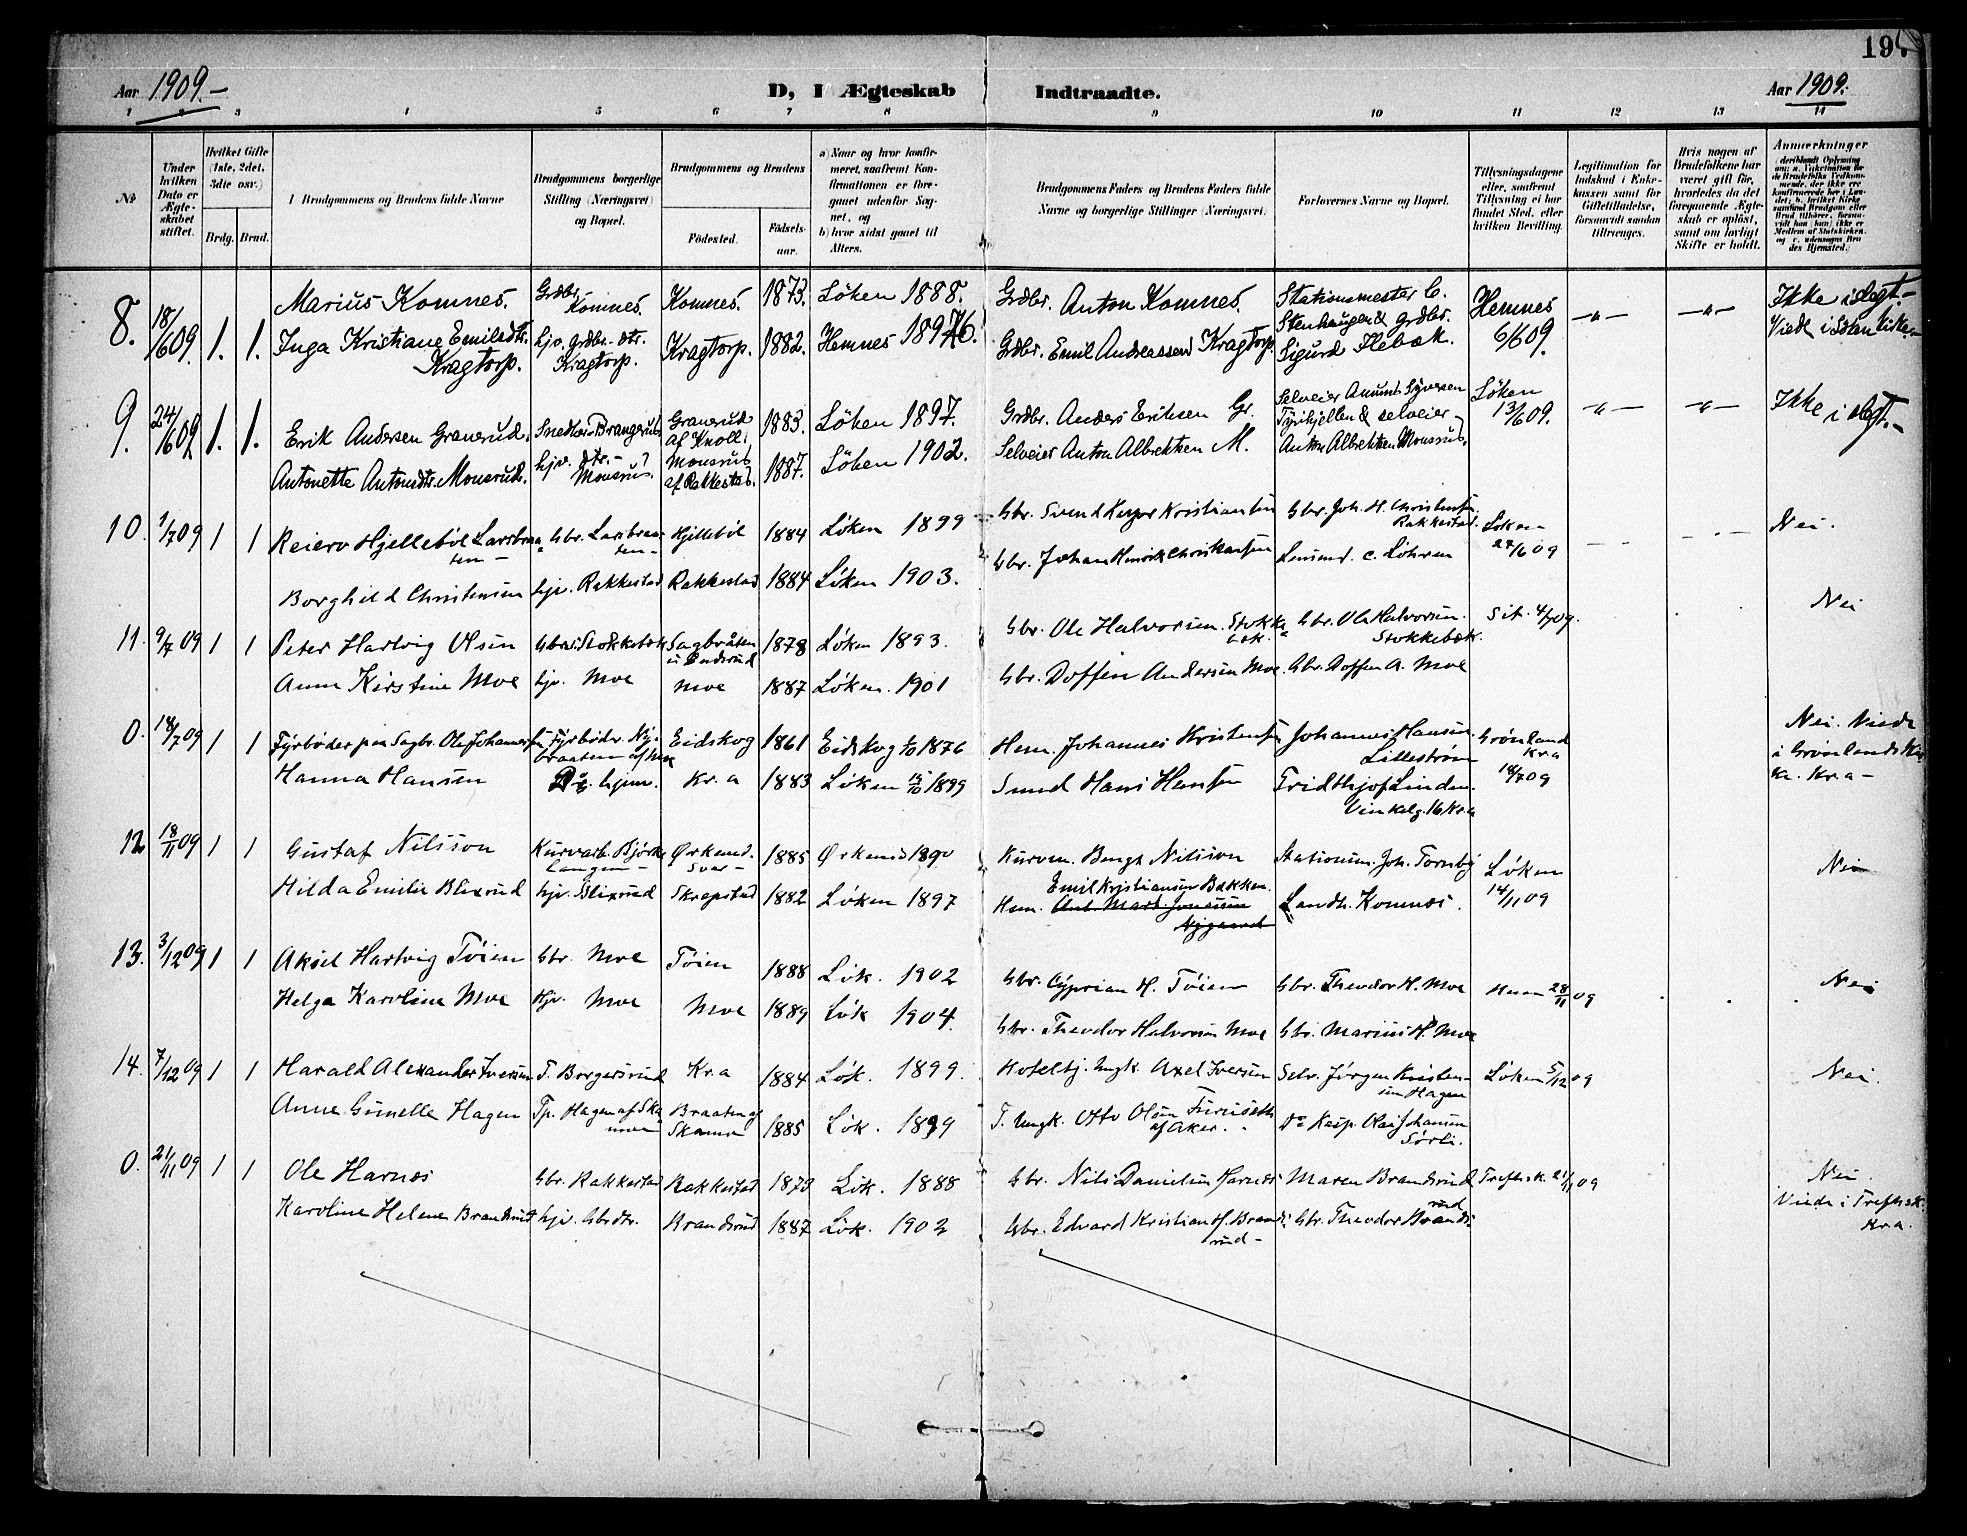 197
Aar 1909.-
D, I Ægteskab Indtraadte.
Aar 1909.
1 2 3 4 5 6 7 8 9 10 11 12 13 14
№
Under hvilken Dato er Ægteskabet stiftet.
Hvilket Gifte (1ste, 2det, 3die osv.)
Brdg. Brud.
I Brudgommens og Brudens fulde Navne
Brudgommens borgerlige Stilling (Næringsvei) og Bopæl.
Brudgommens og Brudens
Födested. Födselsaar.
a) Naar og hvor konfirmeret, saafremt Konfirmationen er foregaaet udenfor Sognet, og
b) hvor sidst gaaet til Alters.
Brudgommens Faders og Brudens Faders fulde Navne og borgerlige Stillinger (Næringsvei).
Forlovernes Navne og Bopæl.
Tillysningsdagene eller, saafremt Tillysning ei har fundet Sted, efter hvilken Bevilling.
Legitimation for Indskud i Enkekassen samt for Giftetilladelse, forsaavidt saadan tiltrænges.
Hvis nogen af Brudefolkene har været gift för, hvorledes da det foregaaende Ægteskab er oplöst, samt om lovligt Skifte er holdt.
Anmærkninger
8. 18/6 09. 1. 1. Marius Komnes. Grdbr. Komnes. Komnes. 1873. Löken 1888. Grdbr. Anton Komnes. Stationsmester C. Stenhaugen & grdbr. Hemnes 6/6 09. -"- -"- Ikke i slegt.-
Inga Kristiane Emilsdtr. Kragtorp. hjv. grdbr-dtr. Kragtorp. Kragtorp. 1882. Hemnes 1896. Grdbr. Emil Andreassen Kragtorp. Sigurd Flebæk. Viede i
9. 24/6 09 1. 1. Erik Andersen Granerud. Snedker Brangerud. Granerud af Knoll 1883. Löken 1897. Grdbr. Anders Eriksen Gr. Selveier Amund Syversen Tyrihjellen & selveier Löken 13/6 09. -"- -"- Ikke i slegt.-
Antonette Antonsdtr. Monsrud. hjv. dtr.- Monsrud. Monsrud af Rakkestad. 1887. Löken 1902. Selveier Anton Albrekken M. Anton Albrekken Monsrud.
10. 1/7 09 1 1 Reierv Hjellebøl Larsbraaten Gbr. Larsbraaten Hjillebøl 1884 Løken 1899 Gbr. Svend Kristiansen Gbr. Joh. H. Christensen Rakkestad. Løken 27/6 09 Nei.
Borghild Christensen hjv. Rakkestad Rakkestad 1884 Løken 1903. Gbr. Johan Henrik Christiansen Lensmd. C. Löhren
11. 9/7 09 1 1 Peter Hartvig Olsen Gbrs. Stokkebæk Sagbråten u. Endsrud 1878 Løken 1893. Gbr. Ole Halvorsen Stokkebæk. Gbr. Ole Halvorsen Stokkebæk. Sit. 4/7 09. Nei
Anne Kirstine Moe hjv. Moe Moe 1887 Løken 1901 Gbr. Doffen Andersen Moe. Gbr. Doffen A. Moe
0. 18/7 09 1 1 Fyrbøder paa Sagbr. Ole Johannessen Fyrbøder. Nybraaten af Moe Eidskog 1861 Eidskog 1876 Hem. Johannes Kristensen Johannes Hansen Lillestrøm Grønland Kr.a 18/7 09 Nei. Viede i Grønlands Kirke. Kr.a -
Hanna Hansen hjem. Kr.a 1883 Løken 15/10 1899 Smed Hans Hansen Fridthjof Linden. Vinkelg. 16 Kr.a
12 18/11 09 1 1 Gustaf Nilsson Kurvarb. Bjørkelangen Ørkened. Sver- 1885 Ørkened 1890 Kurvm. Bengt Nilsson Stationsm. Joh. Tornby Løken 14/11 09 Nei
Hilda Emilie Blixrud hjv. Blixrud Skrepstad 1882 Løken 1897 Hem. Emil Kristiansen Bakken. Ant. Mart. Jonassen Nygaard Landh. Komnes.
13. 3/12 09 1 1 Aksel Hartvig Töien Gbr. Moe Töien 1888 Løk. 1902 Gbr. Cyprian H. Töien Gbr. Theodor H. Moe Hemn 28/11 09 Nei
Helga Karoline Moe Hjv. Moe Moe 1889 Løk 1904. Gbr. Theodor Halvorsen Moe Gbr. Marius H. Moe
14. 7/12 09 1 1 Harald Alexander Iversen T. Borgersrud Kr.a 1884 Løk. 1899. Hotelbj. Ungk. Axel Iversen Selv. Jörgen Kristensen Hagen Løken 5/12 09 Nei.
Anne Gunelle Hagen Tp. Hagen af Skamo Braaten af Skamo 1885 Løk. 1899 T. Ungk. Otto Olsen Furuseth af Aker. Do Kasp. Olai Johansen Sørli.
0. 21/11 09 1 1 Ole Harnes Gbr. Rakkestad Rakkestad 1873 Løk. 1888 Gbr. Nils Danielsen Harnes Maren Brandsrud Trefh.k. 21/11 09 Nei.
Karoline Helene Brandsrud hjv. Gbrdtr. Brandsrud 1887 Løk. 1902 Gbr. Edvard Kristian H. Brandsrud- Gbr. Theodor Brandsrud Viede i Trefh.k. Kr.a.